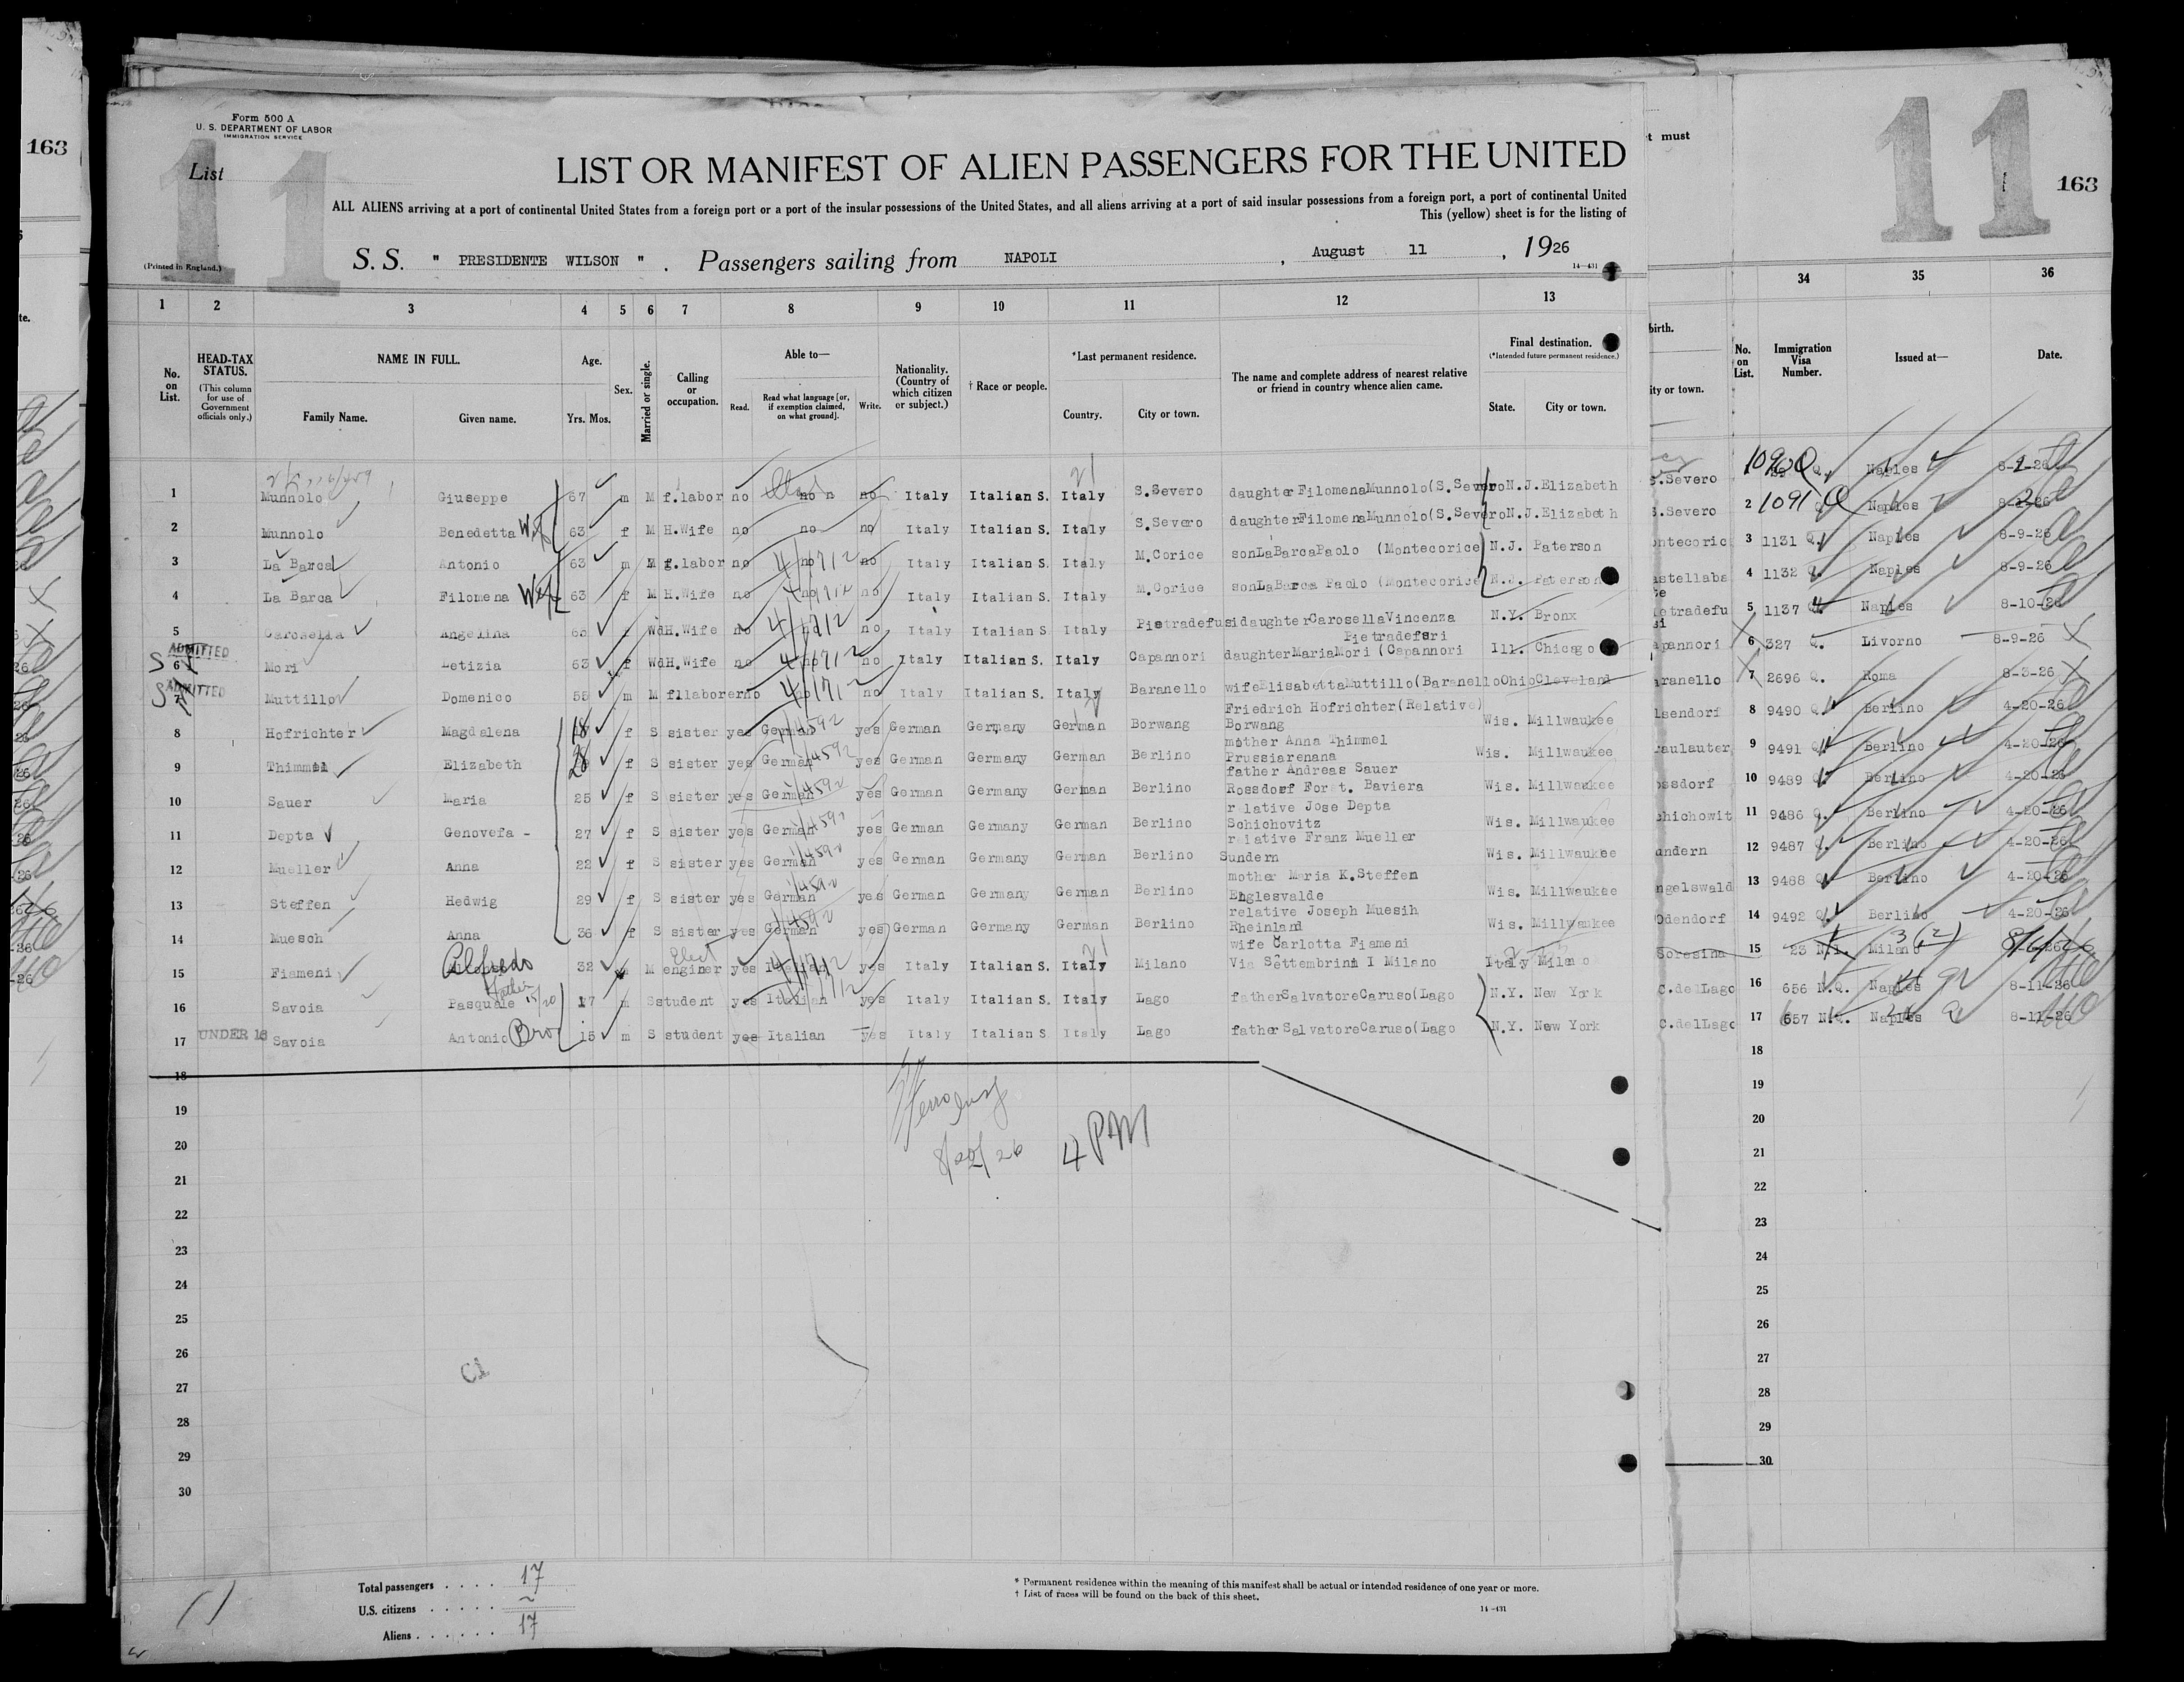 Form 500 A
U. S. DEPARTMENT OF LABOR
IMMIGRATION SERVICE
11
11
163
163
List
LIST OR MANIFEST OF ALIEN PASSENGERS FOR THE UNITED
t must
ALL ALIENS arriving at a port of continental United States from a foreign port or a port of the insular possessions of the United States, and all aliens arriving at a port of said insular possessions from a foreign port, a port of continental United
This (yellow) sheet is for the listing of
(Printed in England.)
S. S. " PRESIDENTE WILSON " . Passengers sailing from NAPOLI , August 11 , 1926
14—431
1 2 3 4 5 6 7 8 9 10 11 12 13 34 35 36
No. on List.
HEAD-TAX STATUS.
(This column for use of Government officials only.)
NAME IN FULL.
Family Name. Given name.
Age.
Yrs. Mos.
Sex.
Married or single.
Calling or occupation.
Able to—
Read. Read what language [or, if exemption claimed, on what ground]. Write.
Nationality. (Country of which citizen or subject.)
† Race or people.
*Last permanent residence.
Country. City or town.
The name and complete address of nearest relative or friend in country whence alien came.
Final destination.
(*Intended future permanent residence.)
State. City or town.
birth.
ity or town.
No. on List.
Immigration Visa Number.
Issued at—
Date.
1 Munnolo Giuseppe 67 m M f.labor no no no Italy Italian S. Italy S.Severo daughter FilomenaMunnolo(S.Severo N.J. Elizabeth S.Severo 1090 Q. Naples
2 Munnolo Benedetta Wife 63 f M H.Wife no no no Italy Italian S. Italy S.Severo daughterFilomenaMunnolo(S.Severo N.J. Elizabeth S.Severo 2 1091 Q Naples
3 La Barca Antonio 63 m M f.labor no no no Italy Italian S. Italy M.Corice sonLaBarcaPaolo (Montecorice N.J. Paterson ontecoric 3 1131 Q. Naples 8-9-26
4 La Barca Filomena Wife 63 f M H.Wife no no no Italy Italian S. Italy M.Corice sonLaBarca Paolo (Montecorice N.J. Paterson astellaba 4 1132 Q. Naples 8-9-26
5 Carosella Angelina 63 f Wd H.Wife no no no Italy Italian S. Italy Pietradefusi daughterCarosellaVincenza N.Y. Bronx ietradefu 5 1137 Naples 8-10-26
Pietradefsri
ADMITTED
6 Mori Letizia 63 f Wd H.Wife no no no Italy Italian S. Italy Capannori daughterMariaMori (Capannori Ill. Chicago apannori 6 327 Q. Livorno 8-9-26
ADMITTED
7 Muttillo Domenico 55 m M f.laborer no no no Italy Italian S. Italy Baranello wifeElisabettaMuttillo(Baranello Ohio Cleveland aranello 7 2696 Q. Roma 8-3-26
Friedrich Hofrichter(Relative)
8 Hofrichter Magdalena 18 f S sister yes German yes German Germany German Borwang Borwang Wis. Millwaukee lsendorf 8 9490 Q Berlino 4-20-26
mother Anna Thimmel
9 Thimmel Elizabeth f S sister yes German yes German Germany German Berlino Prussiarenana Wis. Millwaukee aulauter 9 9491 Q Berlino 4-20-26
father Andreas Sauer
10 Sauer Maria 25 f S sister yes German yes German Germany German Berlino Rossdorf Forst. Baviera Wis. Millwaukee ossdorf 10 9489 Berlino 4-20-26
relative Jose Depta
11 Depta Genovefa - 27 f S sister yes German yes German Germany German Berlino Schichovitz Wis. Millwaukee chichowit 11 9486 Q. Berlino 4-20-26
relative Franz Mueller
12 Mueller Anna 22 f S sister yes German yes German Germany German Berlino Sundern Wis. Millwaukee undern 12 9487 Q. Berlino 4-20-26
mother Maria K.Steffen
13 Steffen Hedwig 29 f S sister yes German yes German Germany German Berlino Englesvalde Wis. Millwaukee ngelswald 13 9488 Q Berlino 4-20-26
relative Joseph Muesih
14 Muesch Anna 36 f S sister yes German yes German Germany German Berlino Rheinland Wis. Millwaukee Odendorf 14 9492 Q. Berlino 4-20-26
wife Carlotta Fiameni
15 Fiameni Alfredo 32 m M Elect enginer yes Italian yes Italy Italian S. Italy Milano Via Settembrini I Milano Italy Milano Soresina 15 23 N.I. Milano 3(2) 8/6/26
16 Savoia Pasquale 17 m S student yes Italian yes Italy Italian S. Italy Lago fatherSalvatoreCaruso(Lago N.Y. New York C.delLago 16 656 N.Q. Naples 8-11-26
17 UNDER 16 Savoia Antonio Bro 15 m S student yes Italian yes Italy Italian S Italy Lago father SalvatoreCaruso(Lago N.Y. New York C.delLago 17 657 N.Q. Naples 8-11-26
18 18
19 19
20 8/20/26 4 PM 20
21 21
22 22
23 23
24 24
25 25
26 26
27 27
28 28
29 29
30 30
Total passengers . . . . 17
U.S. citizens . . . . . ~
Aliens . . . . . . 17
* Permanent residence within the meaning of this manifest shall be actual or intended residence of one year or more.
† List of races will be found on the back of this sheet.
14—431